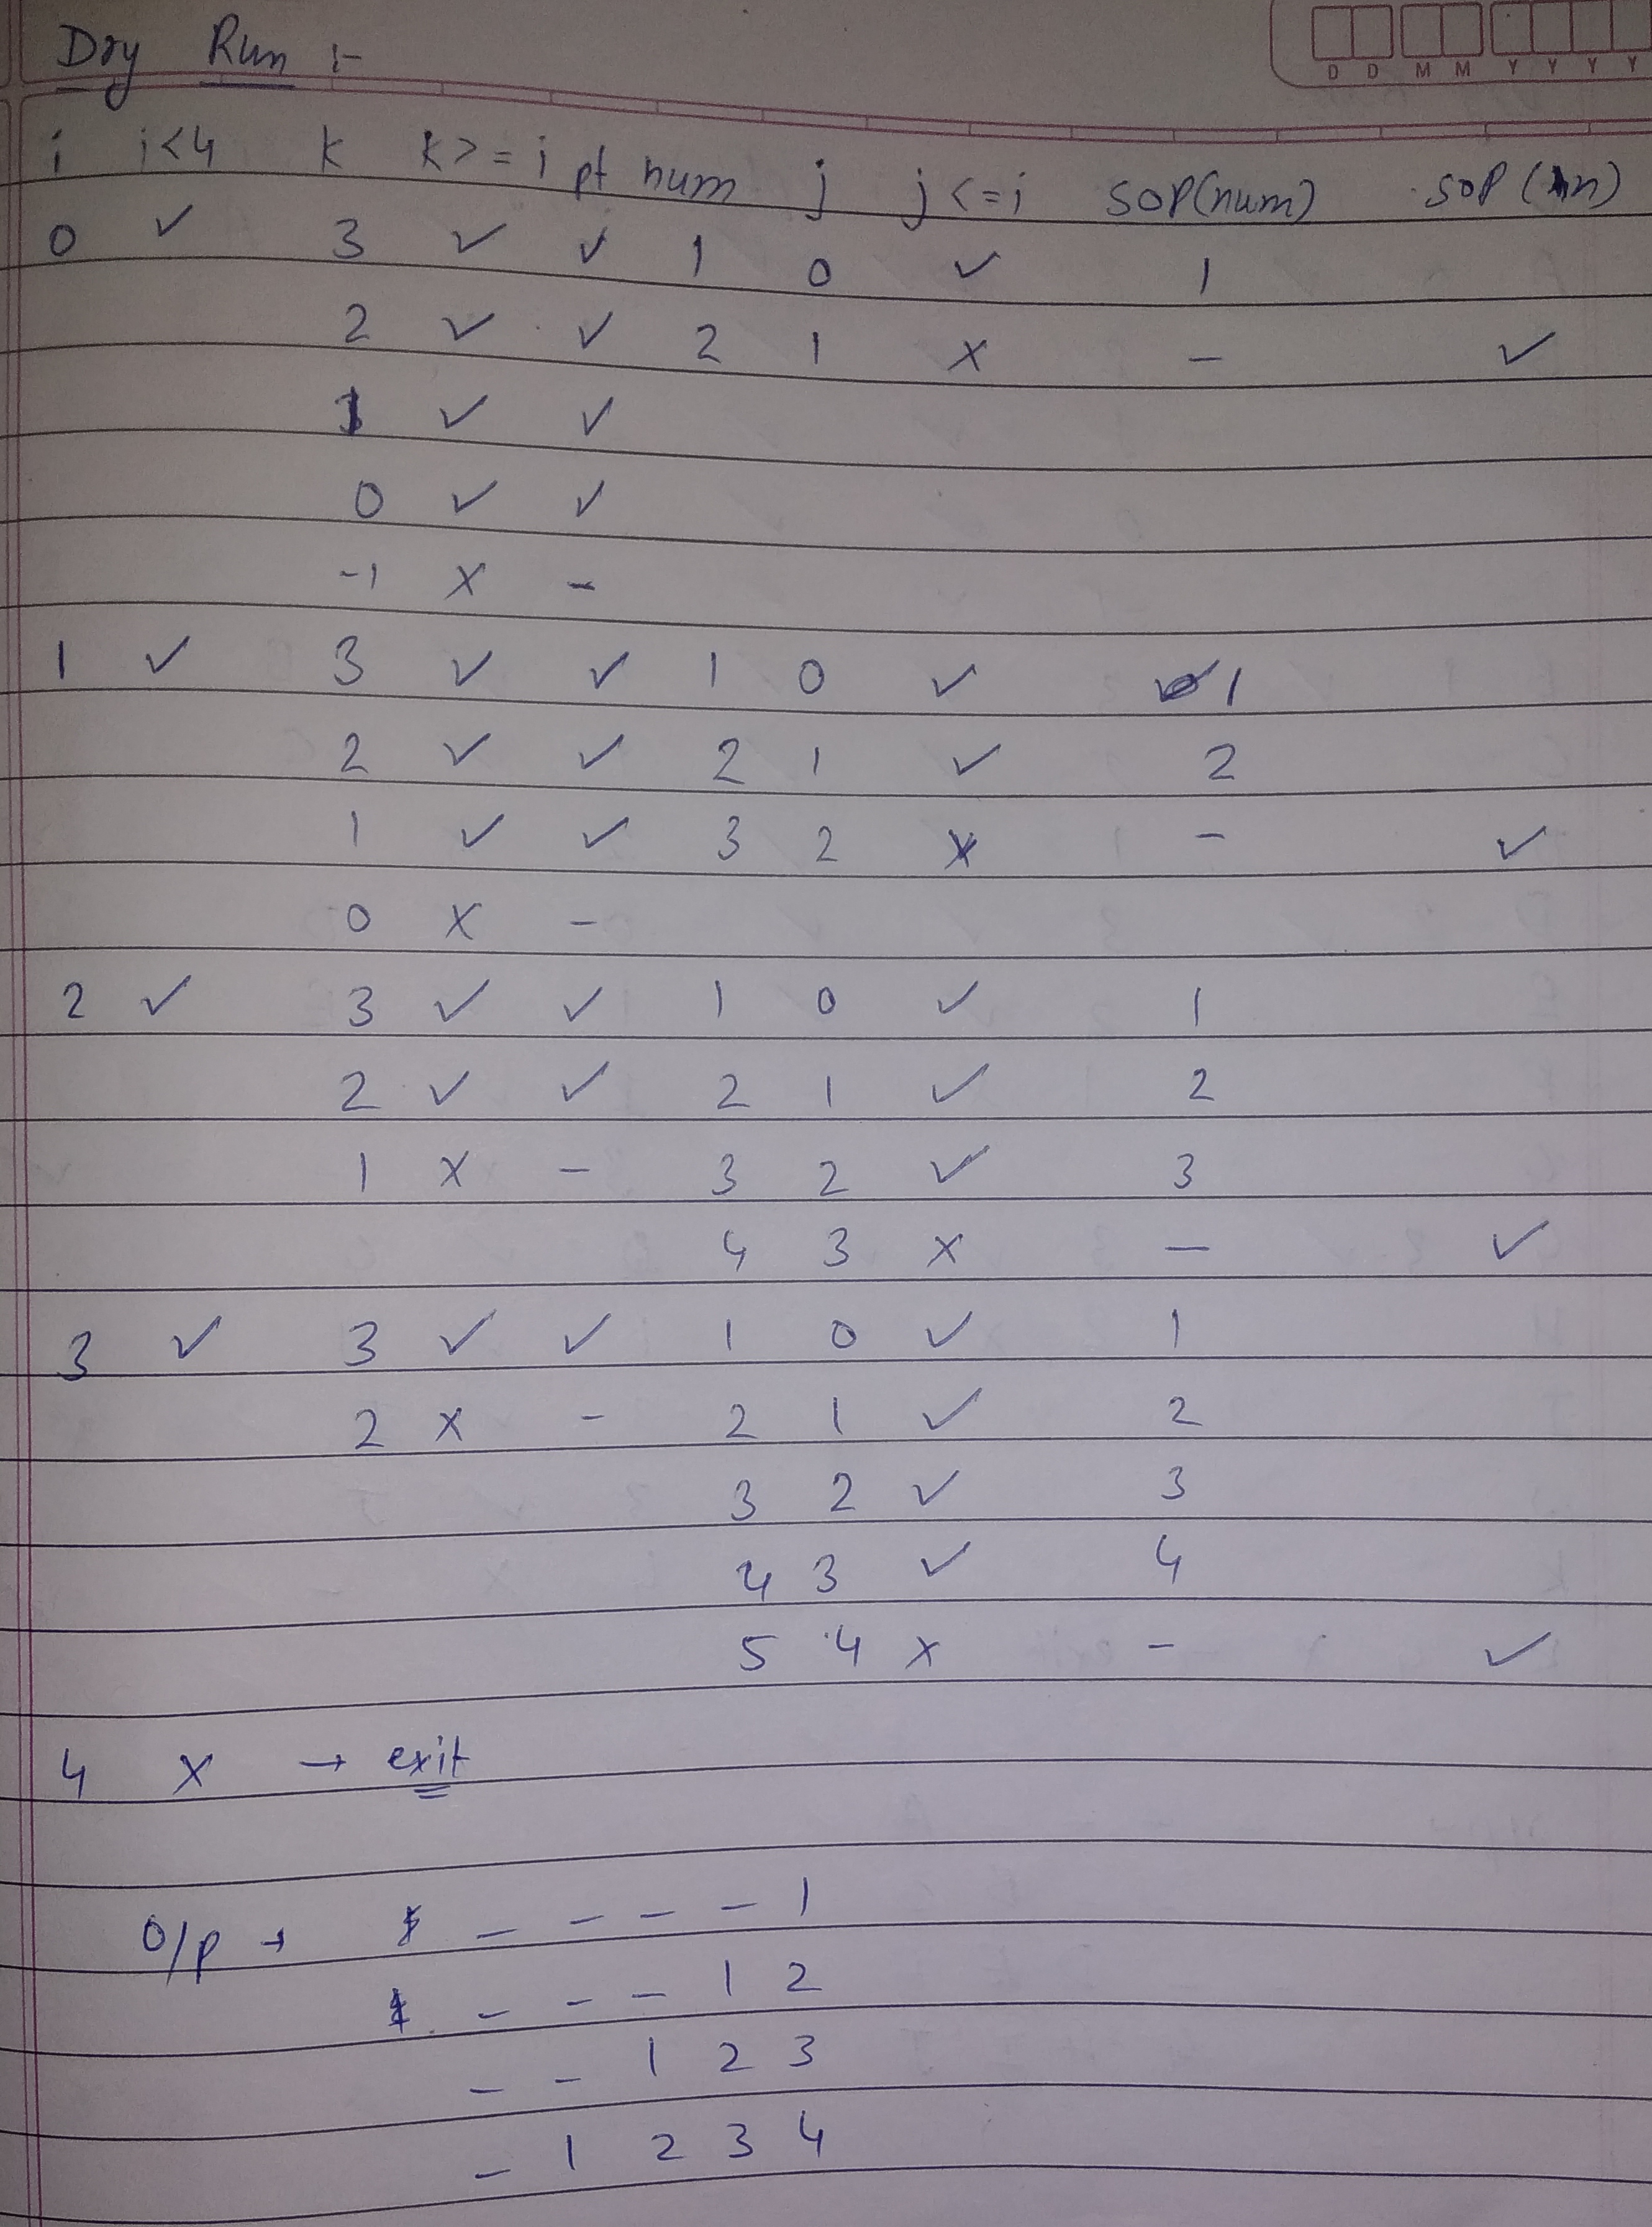 D D M M Y Y Y Y
Dry Run :-
i i<4 k k>=i pt num j j<=i SOP(num) SOP(\n)
0 ✓ 3 ✓ ✓ 1 0 ✓ 1
2 ✓ ✓ 2 1 x - ✓
1 ✓ ✓
0 ✓ ✓
-1 x -
1 ✓ 3 ✓ ✓ 1 0 ✓ 1
2 ✓ ✓ 2 1 ✓ 2
1 ✓ ✓ 3 2 x - ✓
0 x -
2 ✓ 3 ✓ ✓ 1 0 ✓ 1
2 ✓ ✓ 2 1 ✓ 2
1 x - 3 2 ✓ 3
4 3 x - ✓
3 ✓ 3 ✓ ✓ 1 0 ✓ 1
2 x - 2 1 ✓ 2
3 2 ✓ 3
4 3 ✓ 4
5 4 x - ✓
4 x → exit
O/p → _ _ _ _ 1
_ _ _ 1 2
_ _ 1 2 3
_ 1 2 3 4